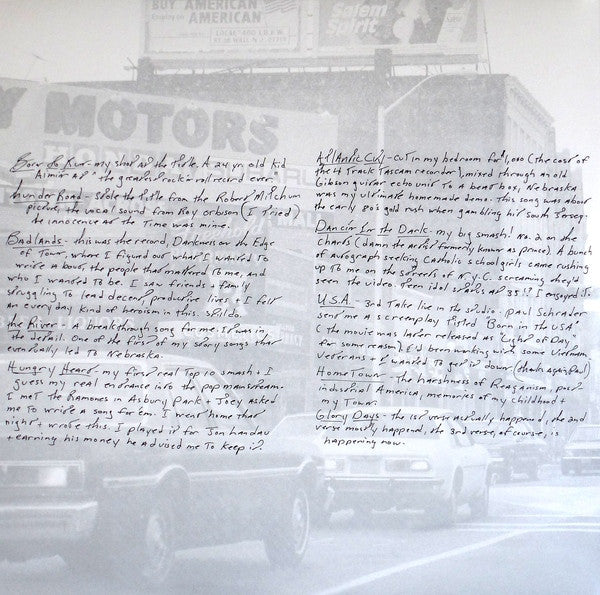 BUY AMERICAN
AMERICAN
Salem
Spirit
Y MOTORS
Born to Run - my shot at the title. A 24 yr old kid
Aimin at "the greatest rock'n roll record ever"
thunder Road - stole the title from the Robert Mitchum
picture, the vocal sound from Roy Orbison (I tried)
the innocence of the time was mine.
Badlands - this was the record, Darkness on the Edge
of Town, where I figured out what I wanted to
write about, the people that mattered to me, and
who I wanted to be. I saw friends + family
struggling to lead decent productive lives + I felt
an everyday kind of heroism in this. Still do.
the River - a breakthrough song for me. It was in
the detail. One of the first of my story songs that
eventually led to Nebraska.
Hungry Heart - my first real Top 10 smash + I
guess my real entrance into the pop mainstream.
I met the Ramones in Asbury Park + Joey asked
me to write a song for em. I went home that
night + wrote this. I played it for Jon Landau
+ earning his money he advised me to keep it.
Atlantic City - cut in my bedroom for $1,000 (the cost of
the 4 Track Tascam recorder), mixed through an old
Gibson guitar echo unit to a beat box, Nebraska
was my ultimate home made demo. This song was about
the early 80's gold rush when gambling hit South Jersey.
Dancin In the Dark - my big smash! No. 2 on the
charts (damn the artist formerly known as prince). A bunch
of autograph seeking Catholic schoolgirls came rushing
up to me on the streets of N.Y.C. screaming they'd
seen the video. Teen idol status at 35!? I enjoyed it.
U.S.A. - 3rd Take live in the studio. Paul Schrader
sent me a screenplay titled 'Born in the USA'
(the movie was later released as "Light of Day"
for some reason). I'd been working with some Vietnam
Veterans + I wanted to get it down (thanks again Paul)
HomeTown - the harshness of Reaganism, post
industrial America, memories of my childhood +
my Town.
Glory Days - the 1st verse actually happened, the 2nd
verse mostly happened, the 3rd verse, of course, is
happening now.